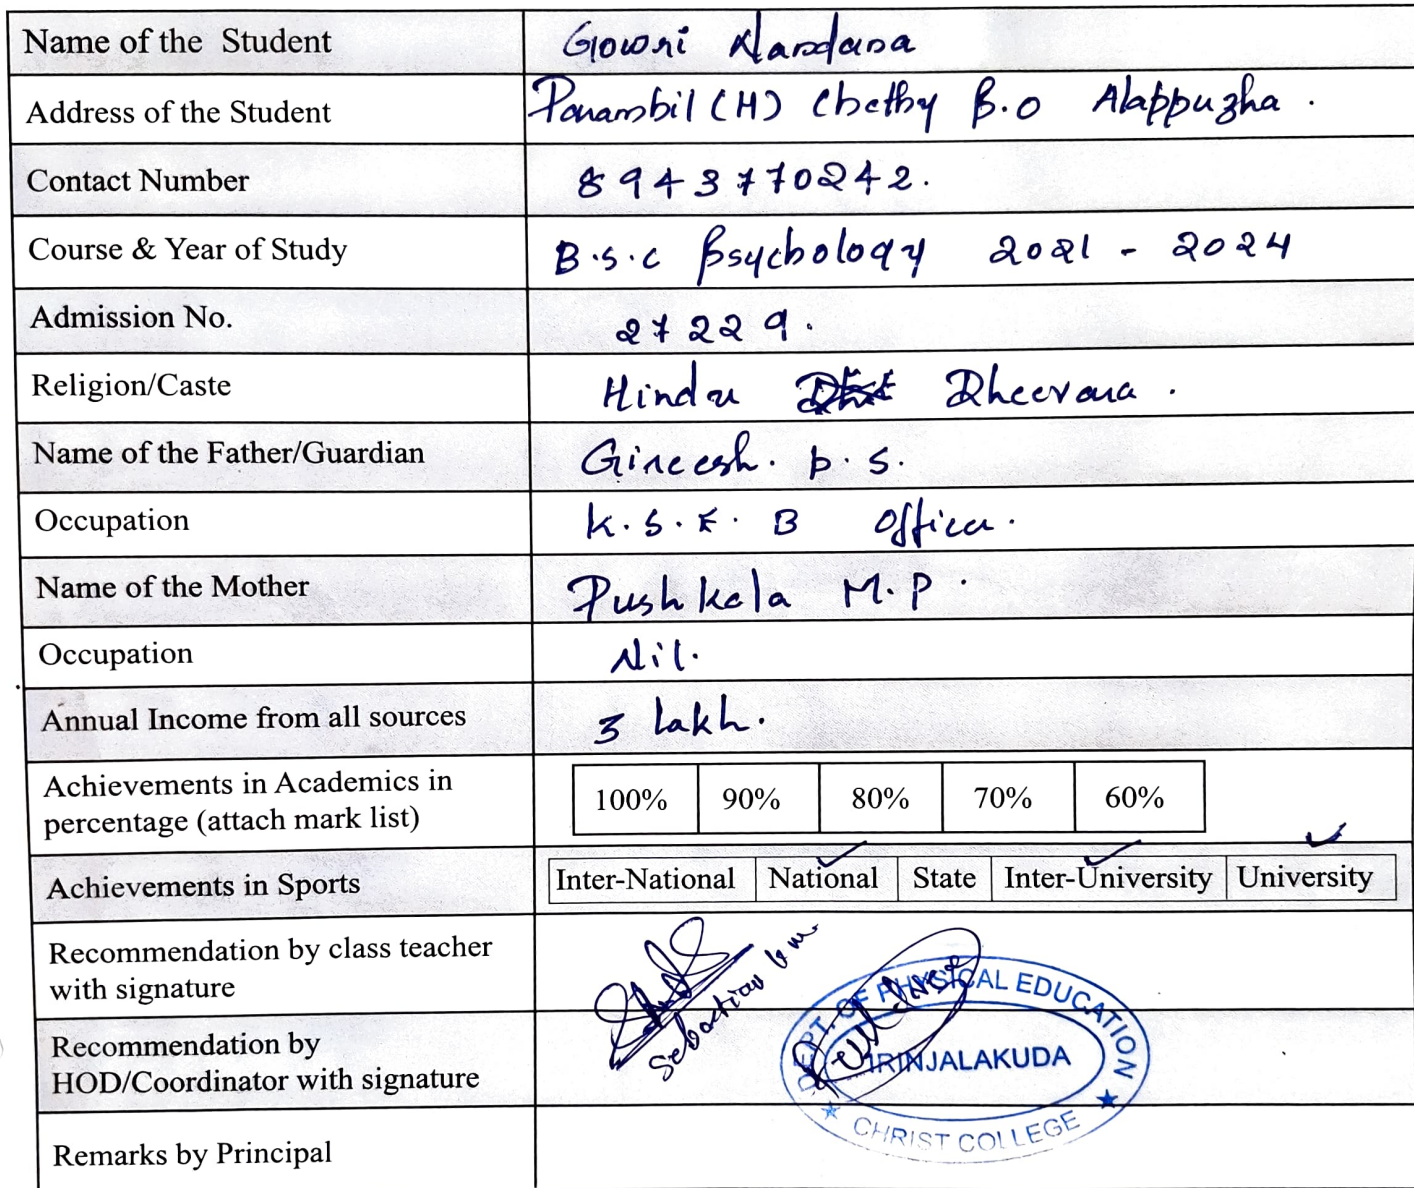 Name of the Student Gowri Nandana
Address of the Student Panambil (H) Chethy P.O Alappuzha.
Contact Number 8943770242.
Course & Year of Study B.s.c Psychology 2021 - 2024
Admission No. 27229.
Religion/Caste Hindu Dheevara.
Name of the Father/Guardian Gireesh. P. S.
Occupation K.S.E.B Officer.
Name of the Mother Pushkala M.P.
Occupation Nil.
Annual Income from all sources 3 lakh.
Achievements in Academics in
percentage (attach mark list)
100% 90% 80% 70% 60%
Achievements in Sports Inter-National National State Inter-University University
Recommendation by class teacher
with signature
Sebastian
Recommendation by
HOD/Coordinator with signature
DEPT. OF PHYSICAL EDUCATION
IRINJALAKUDA
CHRIST COLLEGE
Remarks by Principal